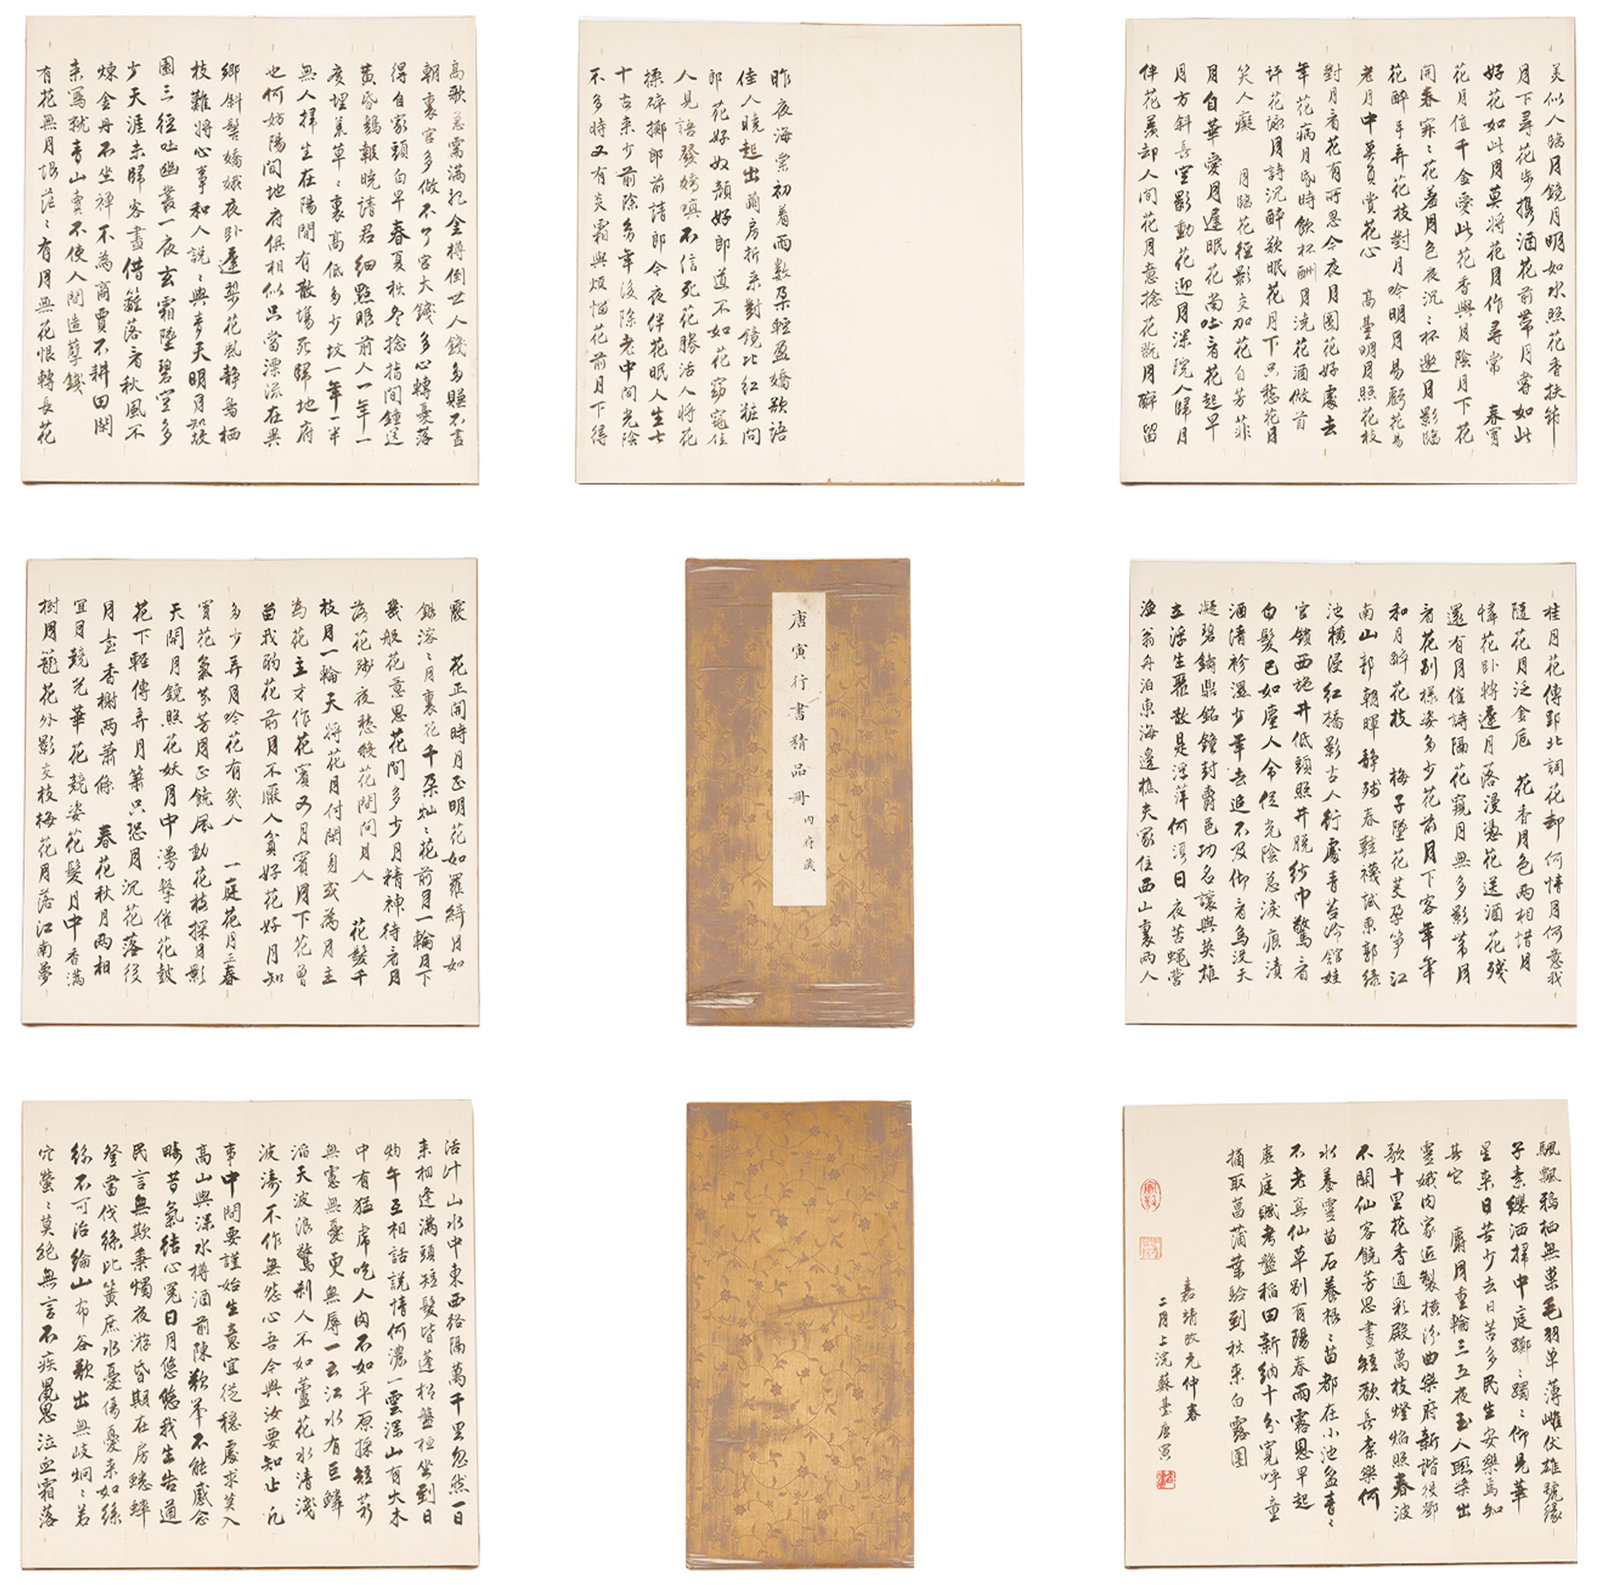 唐寅行書精品冊 內府藏
昨夜海棠初着雨數朵輕盈嬌欲語
佳人曉起出蘭房折來對鏡比紅粧問
郎花好奴顏好郎道不如花窈窕佳
人見語發嬌嗔不信死花勝活人將花
揉碎擲郎前請郎今夜伴花眠人生七
十古來少前除多年後除老中間光陰
不多時又有炎霜與煩惱花前月下得
高歌急需滿把金樽倒世人錢多賺不盡
朝裏官多做不了官大錢多心轉憂落
得自家頭白早春夏秋冬捻指間鐘送
黃昏鷄報曉請君細點眼前人一年一
度埋荒草草裏高低多少坟一年一半
無人掃生在陽間有散場死歸地府
也何妨陽間地府俱相似只當漂流在異
鄉斜髻嬌娥夜卧遲梨花風靜鳥棲
枝難將心事和人說說與青天明月知故
園三徑吐幽叢一夜玄霜墜碧空多
少天涯未歸客盡借籬落看秋風不
煉金丹不坐禪不為商賈不耕田閑
來寫就青山賣不使人間造孽錢
有花無月恨茫茫有月無花恨轉長花
美似人臨月鏡月明如水照花香扶筇
月下尋花步携酒花前帶月嘗如此
好花如此月莫將花月作尋常 春宵
花月值千金愛此花香與月陰月下花
開春寂寂花羞月色夜沉沉杯邀月影臨
花醉手弄花枝對月吟明月易虧花易
老月中莫負賞花心 高臺明月照花枝
對月看花有所思今夜月圓花好處去
年花病月昏時飲杯酬月澆花酒做首
評花詠月詩沉醉欲眠花月下只愁花月
笑人癡 月臨花徑影交加花自芳菲
月自華愛月遲眠花尚吐看花起早
月方斜長空影動花迎月深院人歸月
伴花羨却人間花月意捻花玩月醉留
霞 花正開時月正明花如羅綺月如
銀溶溶月裏花千朵灿灿花前月一輪月下
幾般花意思花間多少月精神待看月
落花殘夜愁殺花間問月人 花發千
枝月一輪天將花月付閑身或為月主
為花主才作花賓又月賓月下花曾
留我酌花前月不厭人貧好花好月知
多少弄月吟花有幾人 一庭花月正春
宵花氣芬芳月正饒風動花枝探月影
天開月鏡照花妖月中漫擊催花鼓
花下輕傳弄月簫只恐月沉花落後
月臺香榭兩蕭條 春花秋月兩相
宜月競光華花競姿花髮月中香滿
樹月籠花外影交枝梅花月落江南夢
桂月花傳郢北詞花却何情月何意我
隨花月泛金卮 花香月色兩相惜月
憐花卧將遲月落漫憑花送酒花殘
還有月催詩隔花窺月無多影帶月
看花別樣姿多少花前月下客年年
和月醉花枝 梅子墜花茭孕笋江
南山郭朝暉靜殘春鞋襪試東郊綠
池橫浸紅橋影古人行處青苔冷館娃
宮鎖西施井低頭照井脫紗巾驚看
白髮已如塵人命促光陰急淚痕漬
酒清衫濕少年去追不及仰看烏沒天
凝碧鑄鼎銘鐘封爵邑功名讓與英雄
立浮生聚散是浮萍何須日夜苦蠅營
漁翁舟泊東海邊樵夫家住西山裏兩人
活計山水中東西路隔萬千里忽然一日
來相逢滿頭短髮皆蓬松盤桓坐到日
灼午互相話說情何濃一雲深山有大木
中有猛虎吃人肉不如平原採短荻
無慮無憂更無辱一云江水有巨鱗
滔天波浪驚剎人不如蘆花水清淺
波濤不作無怨心吾今與汝要知止凡
事中間要謹始生意宜從穩處求莫入
高山與深水樽酒前陳歡舉不能感念
疇昔氣結心冤日月悠悠我生告遒
民言無欺秉燭夜游昏期在房蟋蟀
登堂伐絲比簧庶永憂傷憂來如絲
絲不可治綸山布谷歌出無岐炯炯若
穴螢螢莫絕無言不疾鬼思泣血霜落
颯飄鴉栖無巢毛羽單薄雌伏雄號緣
子素纓洒掃中庭躑躑躅躅仰見華
星來日苦少去日苦多民生安樂焉知
其它 廟月重輪三五夜玉人聯槳出
靈娥內家近製橫汾曲樂府新諧役鄧
歌十里花香通彩殿萬枝燈焰照春波
不關仙客饒芳思晝短歡長奈樂何
水養靈苗石養根根苗都在小池盆青青
不老真仙草別有陽春雨露恩早起
虛庭賦考盤稻田新納十分寬呼童
摘取菖蒲葉驗到秋來白露團
嘉靖改元仲春
二月上浣蘇臺唐寅